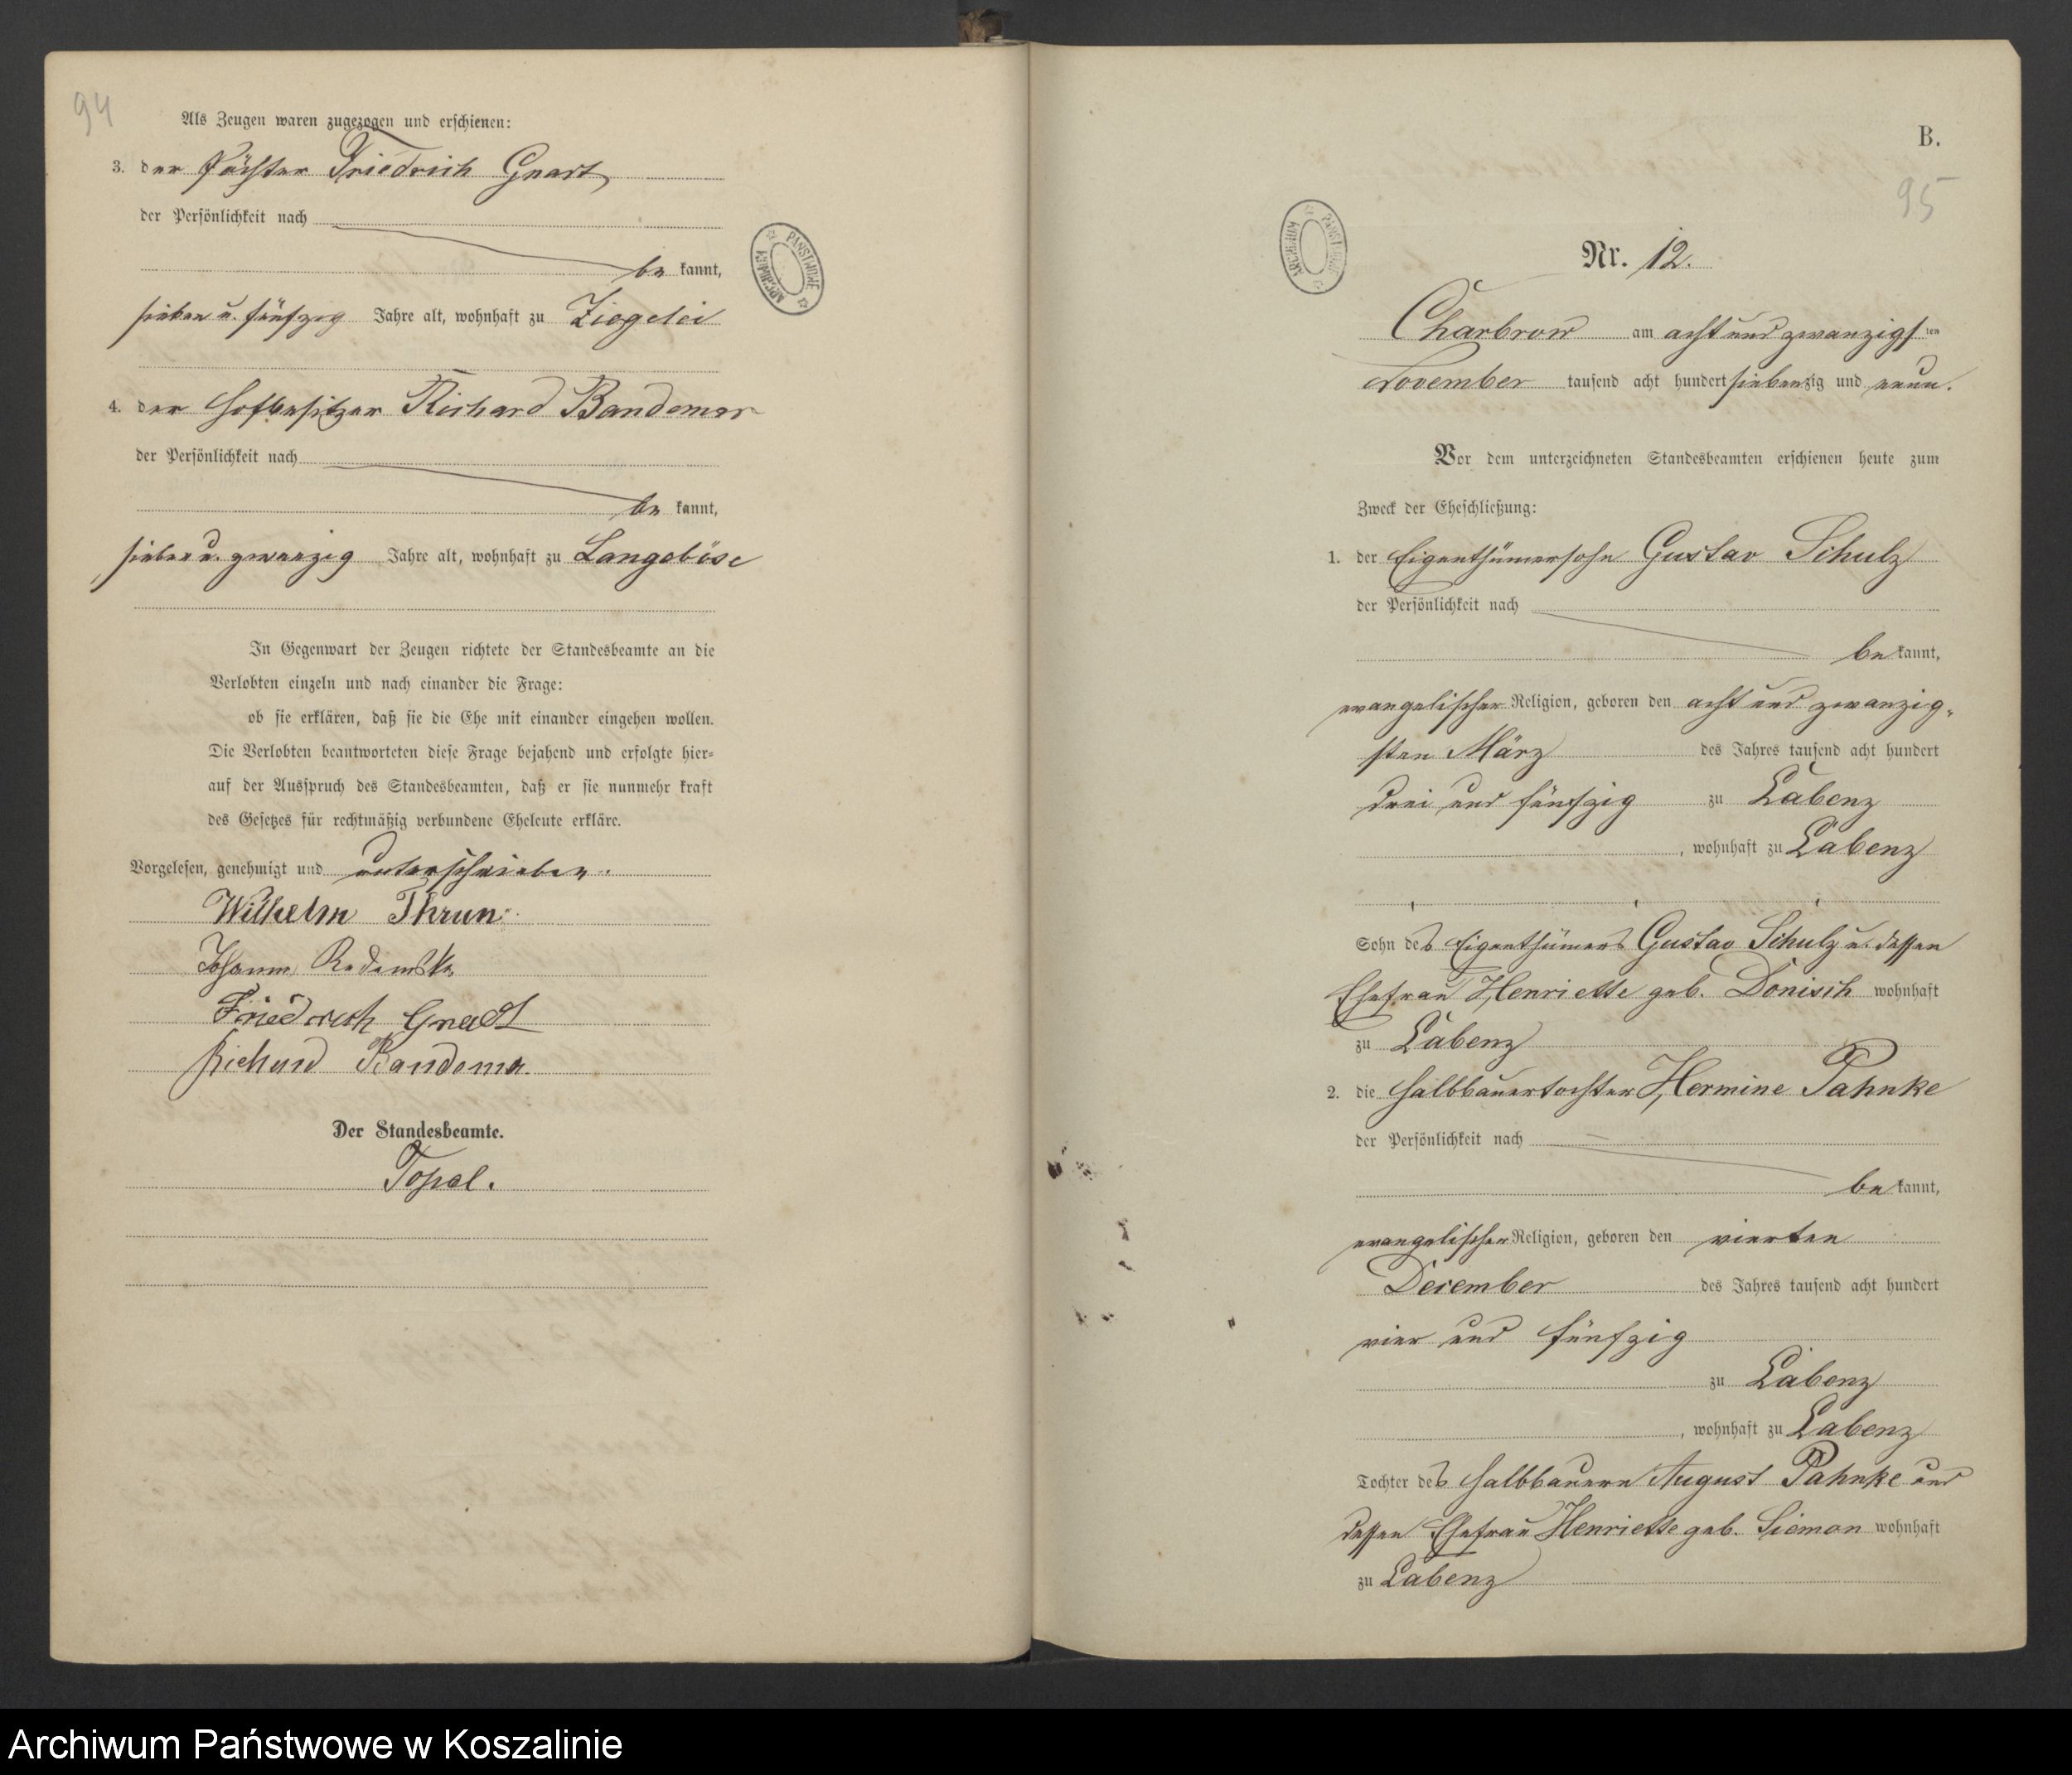 94
Als Zeugen waren zugezogen und erschienen:
3. der Pächter Friedrich Gnart
der Persönlichkeit nach
be kannt,
sieben u. fünfzig Jahre alt, wohnhaft zu Ziegelei
4. der Hofbesitzer Richard Bandemer
der Persönlichkeit nach
be kannt,
sieben u. zwanzig Jahre alt, wohnhaft zu Langeböse
In Gegenwart der Zeugen richtete der Standesbeamte an die
Verlobten einzeln und nach einander die Frage:
ob sie erklären, daß sie die Ehe mit einander eingehen wollen.
Die Verlobten beantworteten diese Frage bejahend und erfolgte hier-
auf der Ausspruch des Standesbeamten, daß er sie nunmehr kraft
des Gesetzes für rechtmäßig verbundene Eheleute erkläre.
Vorgelesen, genehmigt und unterschrieben.
Wilhelm Thrun
Johann
Friedrich Gnart
Richard Bandemer.
Der Standesbeamte.
ARCHIWUM PAŃSTWOWE
B.
95
ARCHIWUM PAŃSTWOWE
Nr. 12.
Charbrow am acht und zwanzigsten
November tausend acht hundert siebenzig und neun.
Vor dem unterzeichneten Standesbeamten erschienen heute zum
Zweck der Eheschließung:
1. der Eigenthümersohn Gustav Schulz
der Persönlichkeit nach
be kannt,
evangelischer Religion, geboren den acht und zwanzig-
sten März des Jahres tausend acht hundert
drei und fünfzig zu Labenz
, wohnhaft zu Labenz
Sohn des Eigenthümers Gustav Schulz u. dessen
Ehefrau Henriette geb. Donisch wohnhaft
zu Labenz
2. die Halbbauertochter Hermine Pahnke
der Persönlichkeit nach
be kannt,
evangelischer Religion, geboren den vierten
December des Jahres tausend acht hundert
vier und fünfzig
zu Labenz
, wohnhaft zu Labenz
Tochter des Halbbauern August Pahnke und
dessen Ehefrau Henriette geb. Siemon wohnhaft
zu Labenz
Archiwum Państwowe w Koszalinie